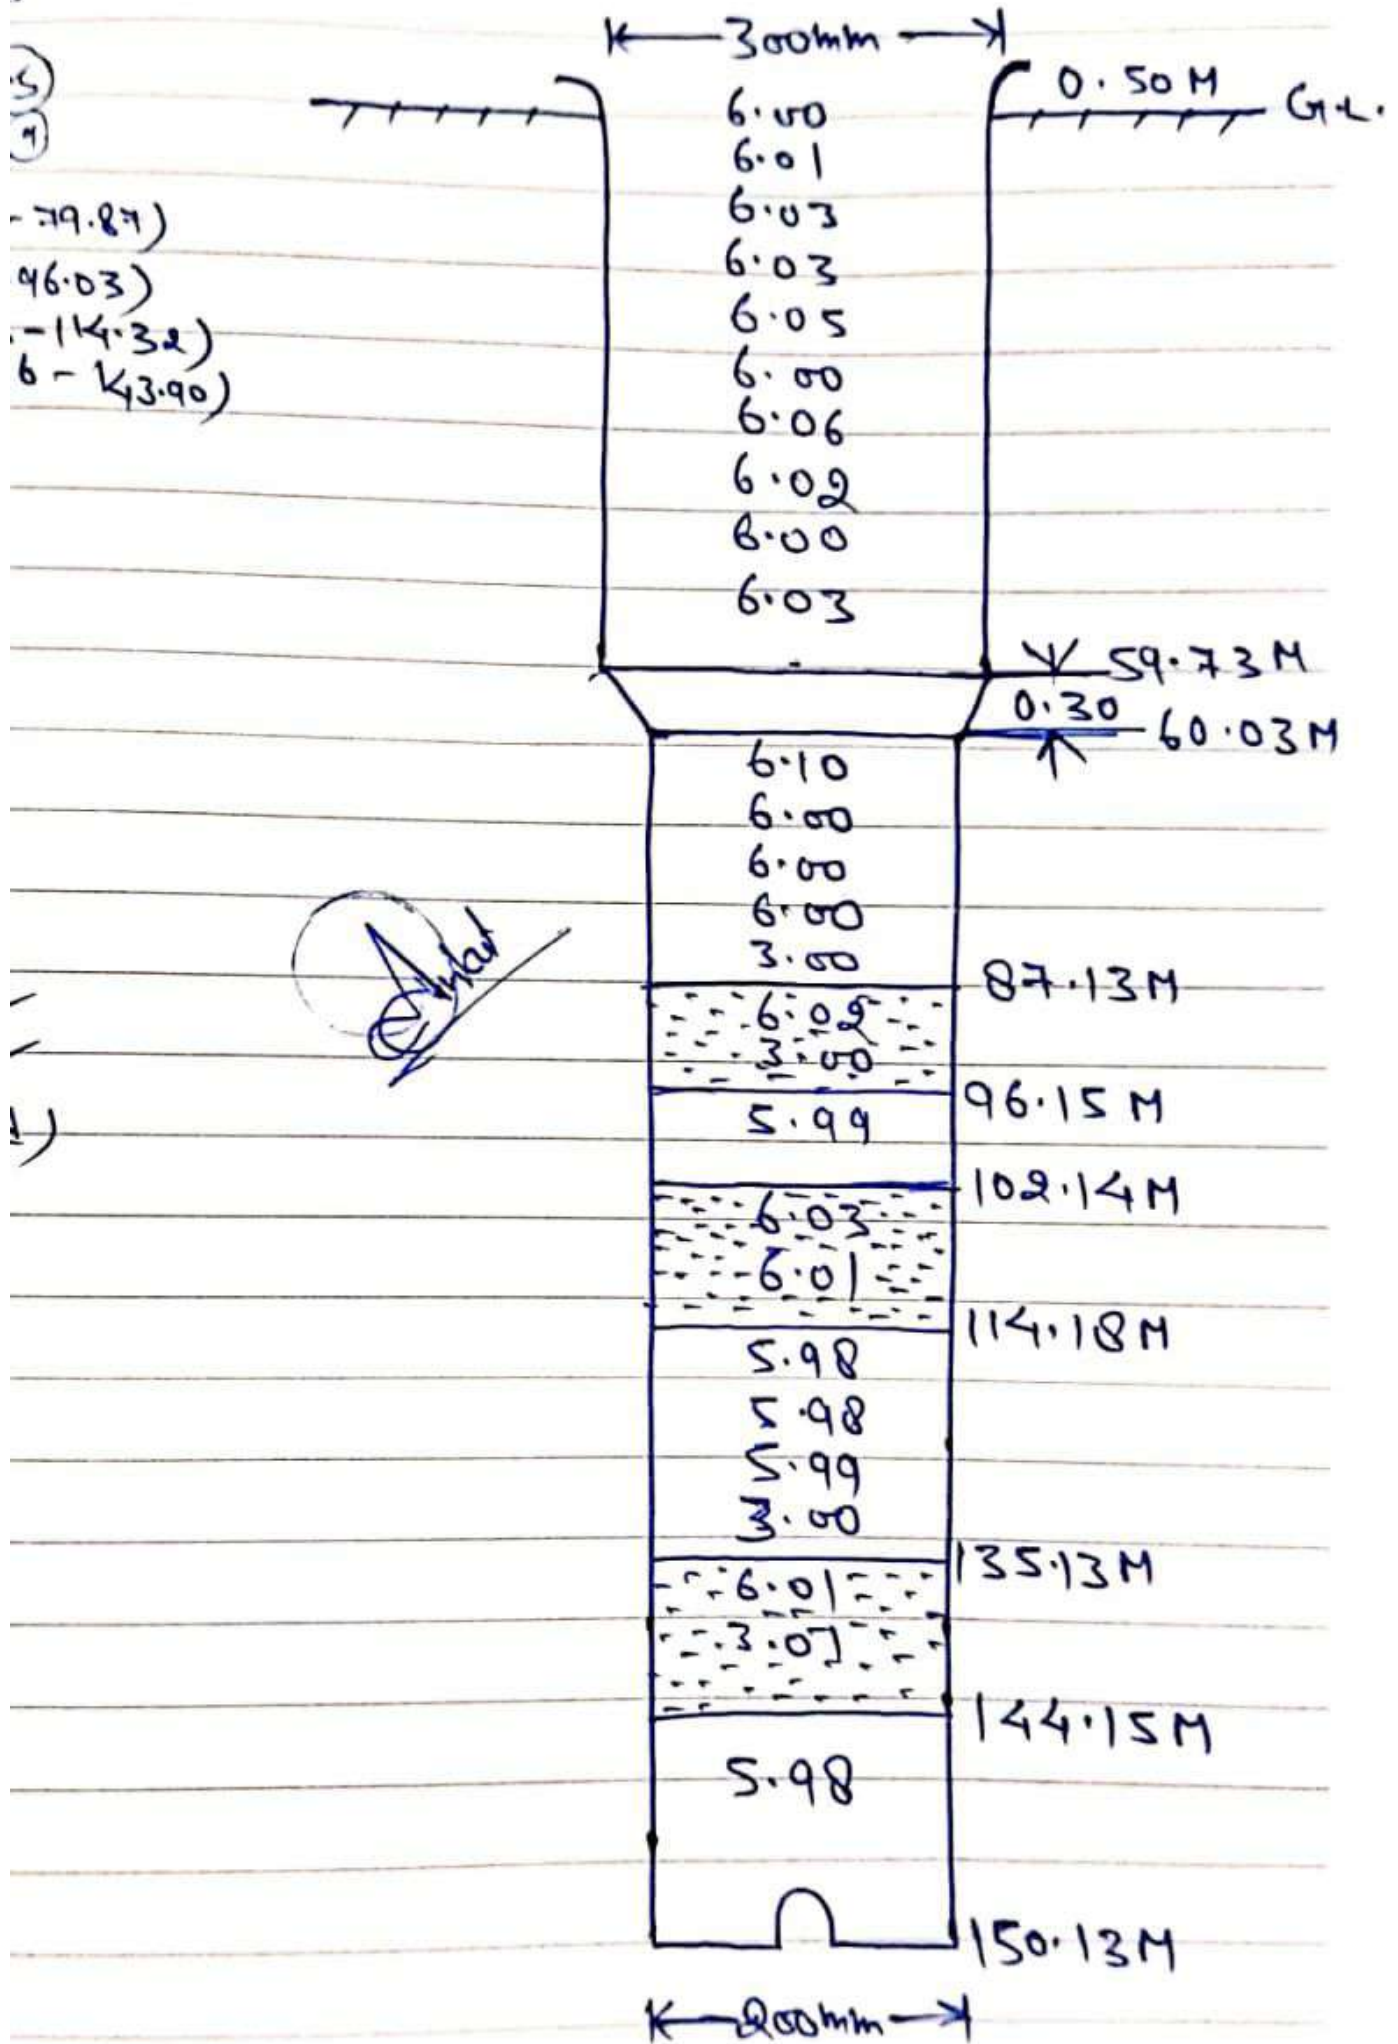 300mm
0.50 M
G.L.
5)
9)
- 79.87)
96.03)
- 114.32)
6 - 143.90)
6.00
6.01
6.03
6.03
6.05
6.00
6.06
6.02
6.00
6.03
59.73M
0.30
60.03M
6.10
6.00
6.00
6.00
3.00
87.13M
6.02
3.00
96.15 M
5.99
102.14M
6.03
6.01
114.18M
5.98
5.98
5.99
3.00
135.13M
6.01
3.01
144.15M
5.98
150.13M
200mm